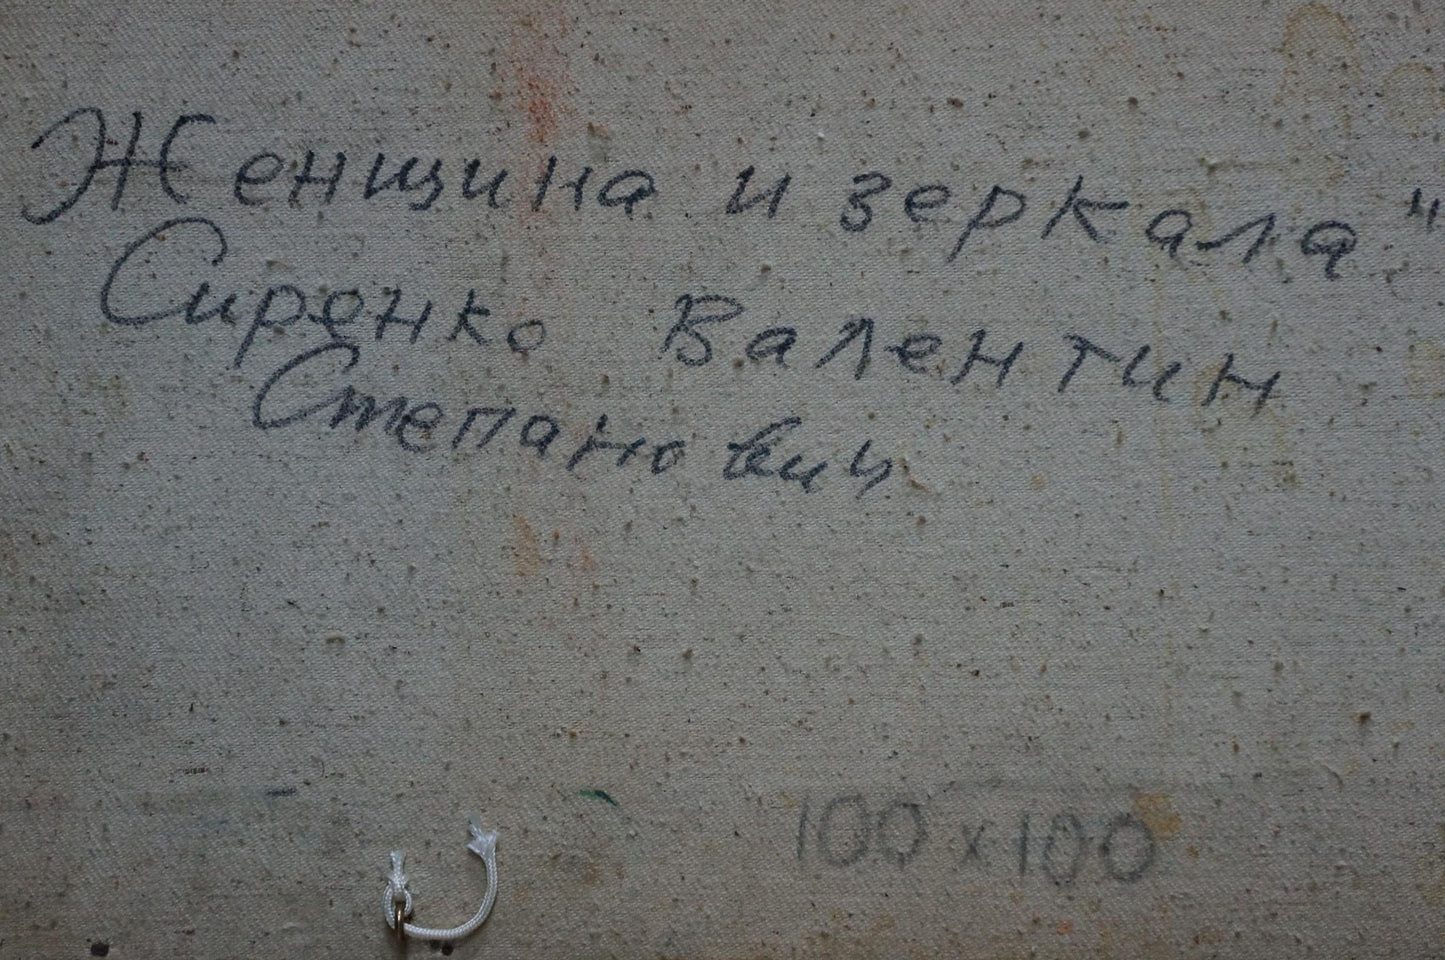 Женщина и зеркала"
Сиренко Валентин
Степанович
100 x 100